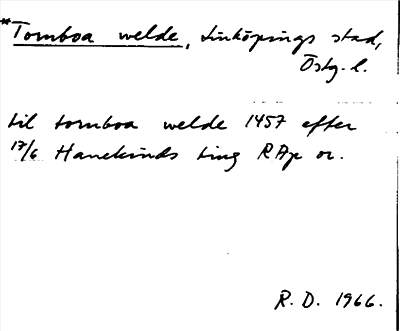 *Tomboa welde, Linköpings stad,
Östg. l.
til tomboa welde 1457 efter
17/6 Hanekinds ting RAp or.
R. D. 1966.